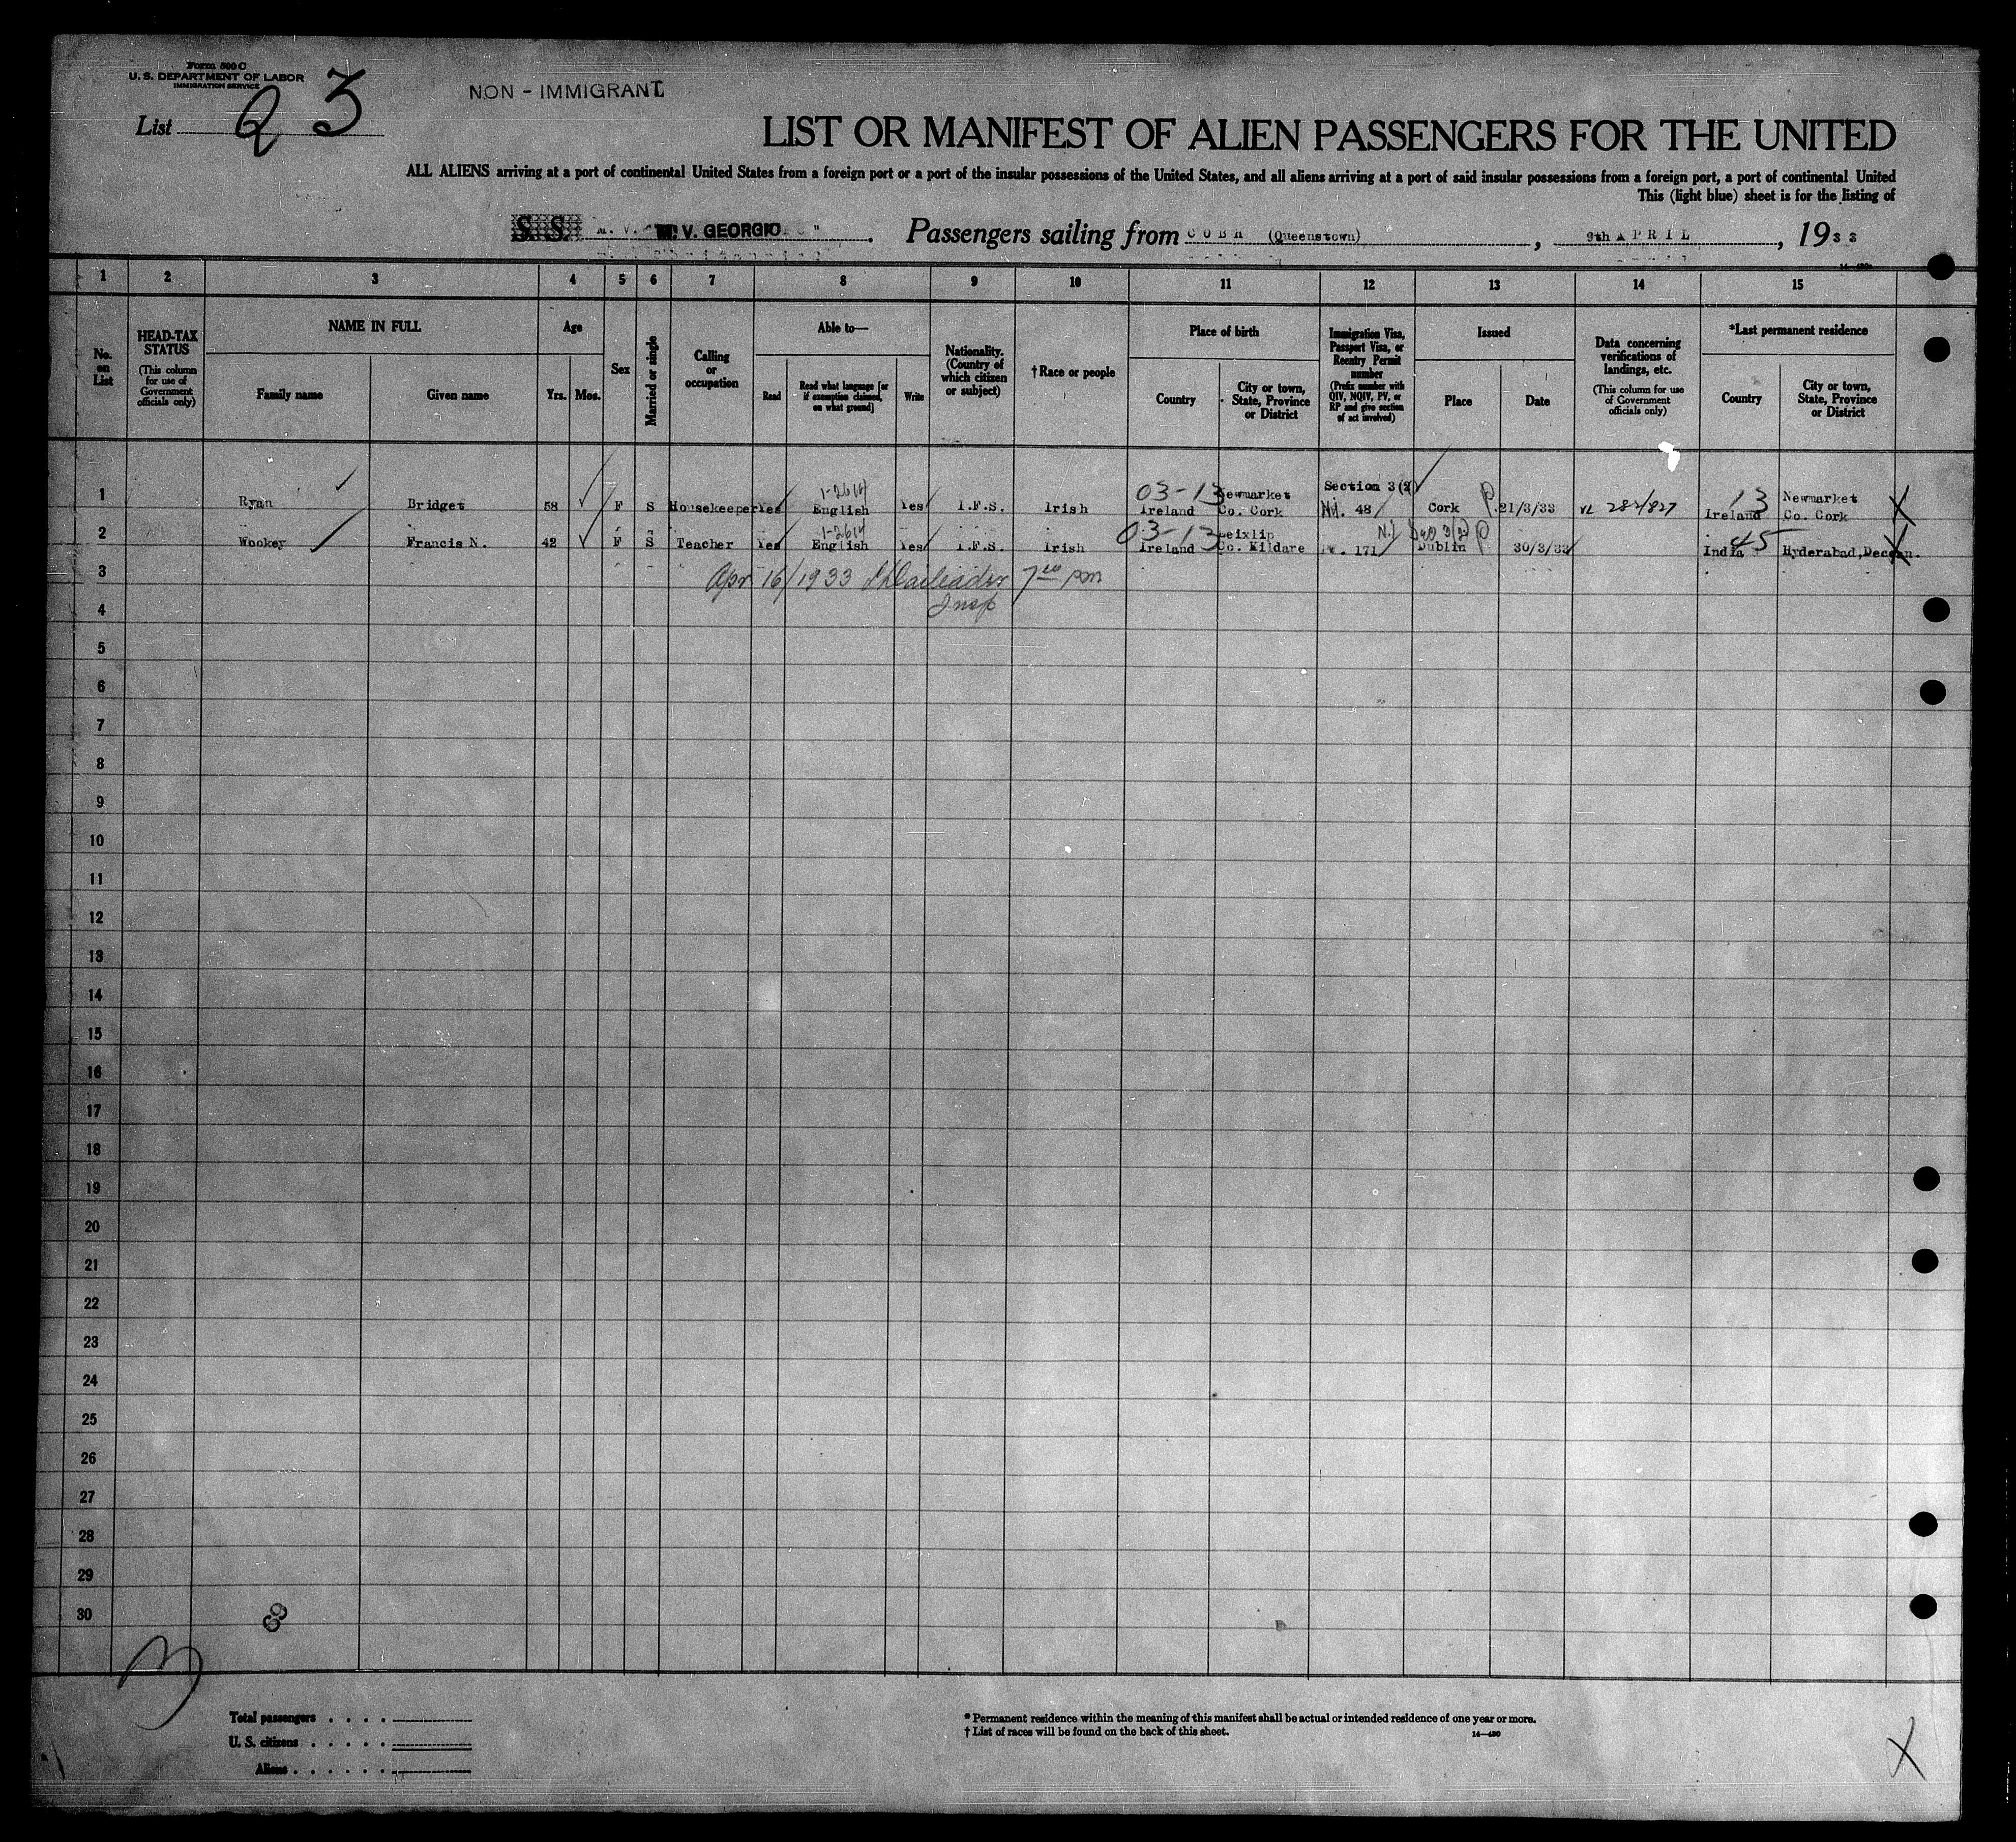 Form 500 C
U. S. DEPARTMENT OF LABOR
IMMIGRATION SERVICE
List 2 3
NON - IMMIGRANT
LIST OR MANIFEST OF ALIEN PASSENGERS FOR THE UNITED
ALL ALIENS arriving at a port of continental United States from a foreign port or a port of the insular possessions of the United States, and all aliens arriving at a port of said insular possessions from a foreign port, a port of continental United
This (light blue) sheet is for the listing of
S. S. M. V. GEORGIC . Passengers sailing from COBH (Queenstown) , 9th APRIL , 1933
1 2 3 4 5 6 7 8 9 10 11 12 13 14 15
No. on List
HEAD-TAX STATUS
(This column for use of Government officials only)
NAME IN FULL
Family name
Given name
Age
Yrs. Mos.
Sex
Married or single
Calling or occupation
Able to—
Read
Read what language [or if exemption claimed, on what ground]
Write
Nationality. (Country of which citizen or subject)
† Race or people
Place of birth
Country
City or town, State, Province or District
Immigration Visa, Passport Visa, or Reentry Permit number
(Prefix number with QIV, NQIV, PV, or RP and give section of act involved)
Issued
Place
Date
Data concerning verifications of landings, etc.
(This column for use of Government officials only)
*Last permanent residence
Country
City or town, State, Province or District
1-2614 03-13 Newmarket Section 3(2) 13 Newmarket
1 Ryan Bridget 58 F S Housekeeper Yes English Yes I.F.S. Irish Ireland Co. Cork 48 Cork 21/3/33 VL 284/827 Ireland Co. Cork
1-2614 03-13 Leixlip 45
2 Wookey Francis N. 42 F S Teacher Yes English Yes I.F.S. Irish Ireland Co. Kildare 171 Dublin 30/3/33 India Hyderabad, Deccan.
3 Apr 16/1933 7 pm
4 Insp
5
6
7
8
9
10
11
12
13
14
15
16
17
18
19
20
21
22
23
24
25
26
27
28
29
30
69
Total passengers
U. S. citizens
Aliens
* Permanent residence within the meaning of this manifest shall be actual or intended residence of one year or more.
† List of races will be found on the back of this sheet.
14—430
X